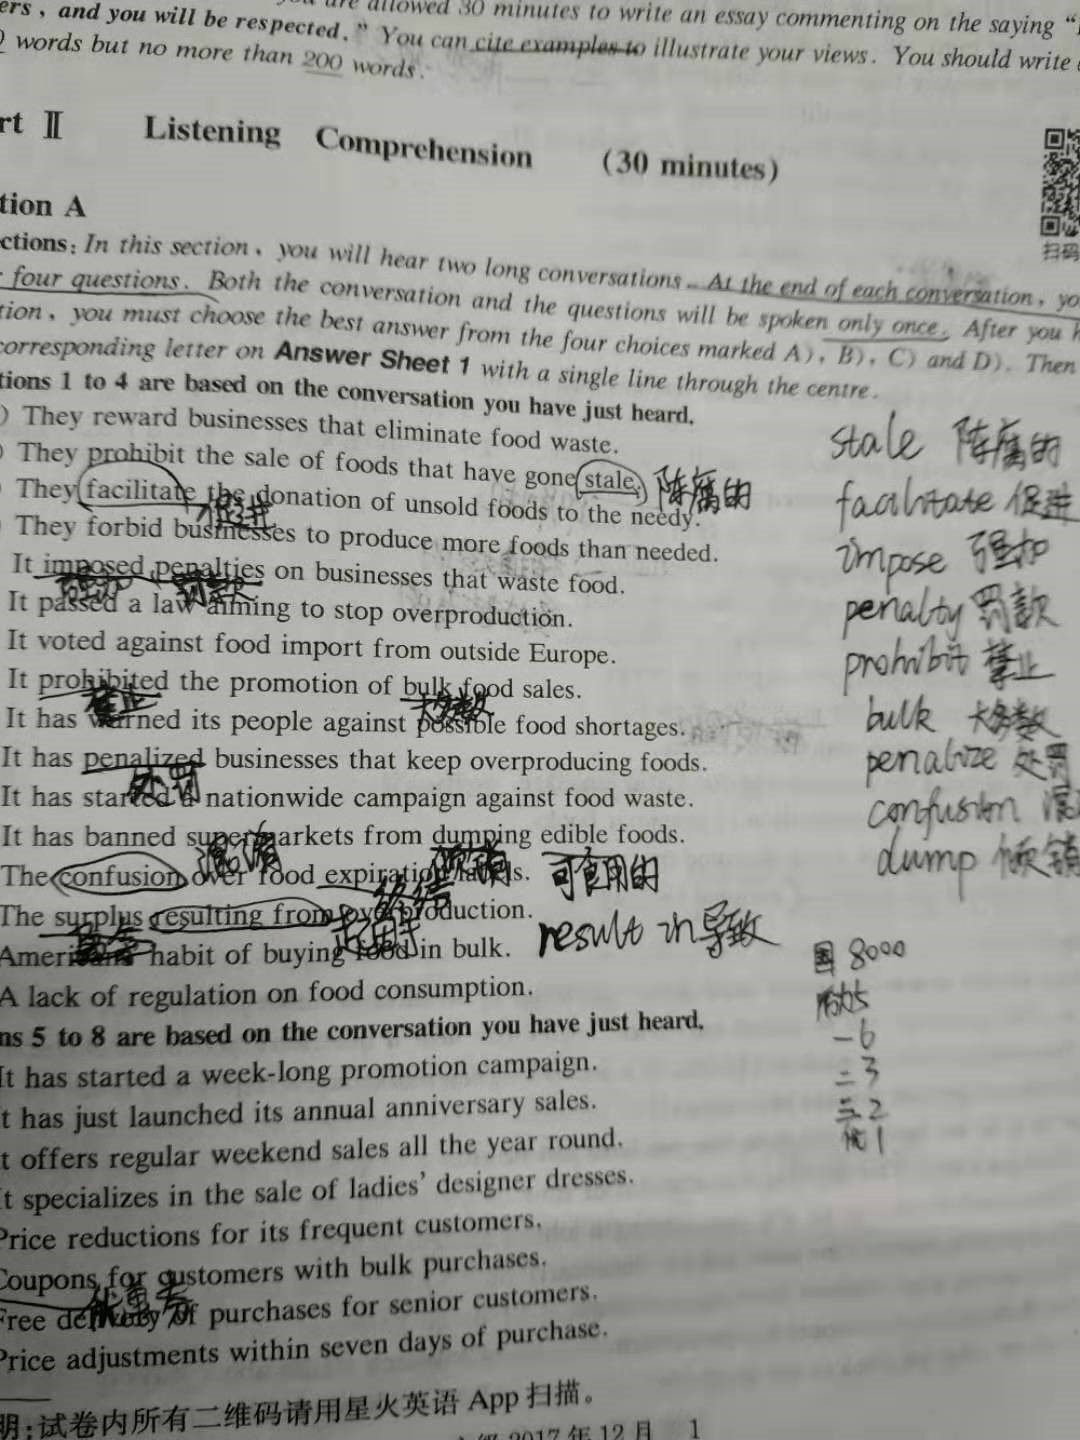 you are allowed 30 minutes to write an essay commenting on the saying "
ers, and you will be respected." You can cite examples to illustrate your views. You should write
words but no more than 200 words.
rt Ⅱ Listening Comprehension (30 minutes)
扫码
tion A
ctions: In this section, you will hear two long conversations. At the end of each conversation, yo
four questions. Both the conversation and the questions will be spoken only once. After you h
tion, you must choose the best answer from the four choices marked A), B), C) and D). Then
corresponding letter on Answer Sheet 1 with a single line through the centre.
tions 1 to 4 are based on the conversation you have just heard.
) They reward businesses that eliminate food waste.
stale 陈腐的
) They prohibit the sale of foods that have gone stale. 陈腐的
They facilitate the donation of unsold foods to the needy.
促进
facilitate 促进
They forbid businesses to produce more foods than needed.
impose 强加
It imposed penalties on businesses that waste food.
强加 罚款
penalty 罚款
It passed a law aiming to stop overproduction.
It voted against food import from outside Europe.
prohibit 禁止
It prohibited the promotion of bulk food sales.
禁止 大多数
bulk 大多数
It has warned its people against possible food shortages.
It has penalized businesses that keep overproducing foods.
处罚
penalize 处罚
It has started a nationwide campaign against food waste.
confusion 混
It has banned supermarkets from dumping edible foods.
混淆 倾销 可食用的
dump 倾销
The confusion over food expiration labels.
终结
The surplus resulting from overproduction.
起因于 result in 导致
Americans' habit of buying food in bulk.
国 8000
A lack of regulation on food consumption.
ns 5 to 8 are based on the conversation you have just heard.
一 6
It has started a week-long promotion campaign.
二 3
It has just launched its annual anniversary sales.
三 2
It offers regular weekend sales all the year round.
优 1
It specializes in the sale of ladies' designer dresses.
Price reductions for its frequent customers.
Coupons for customers with bulk purchases.
优惠券
Free delivery of purchases for senior customers.
Price adjustments within seven days of purchase.
明:试卷内所有二维码请用星火英语 App 扫描。
2017 年 12 月 1